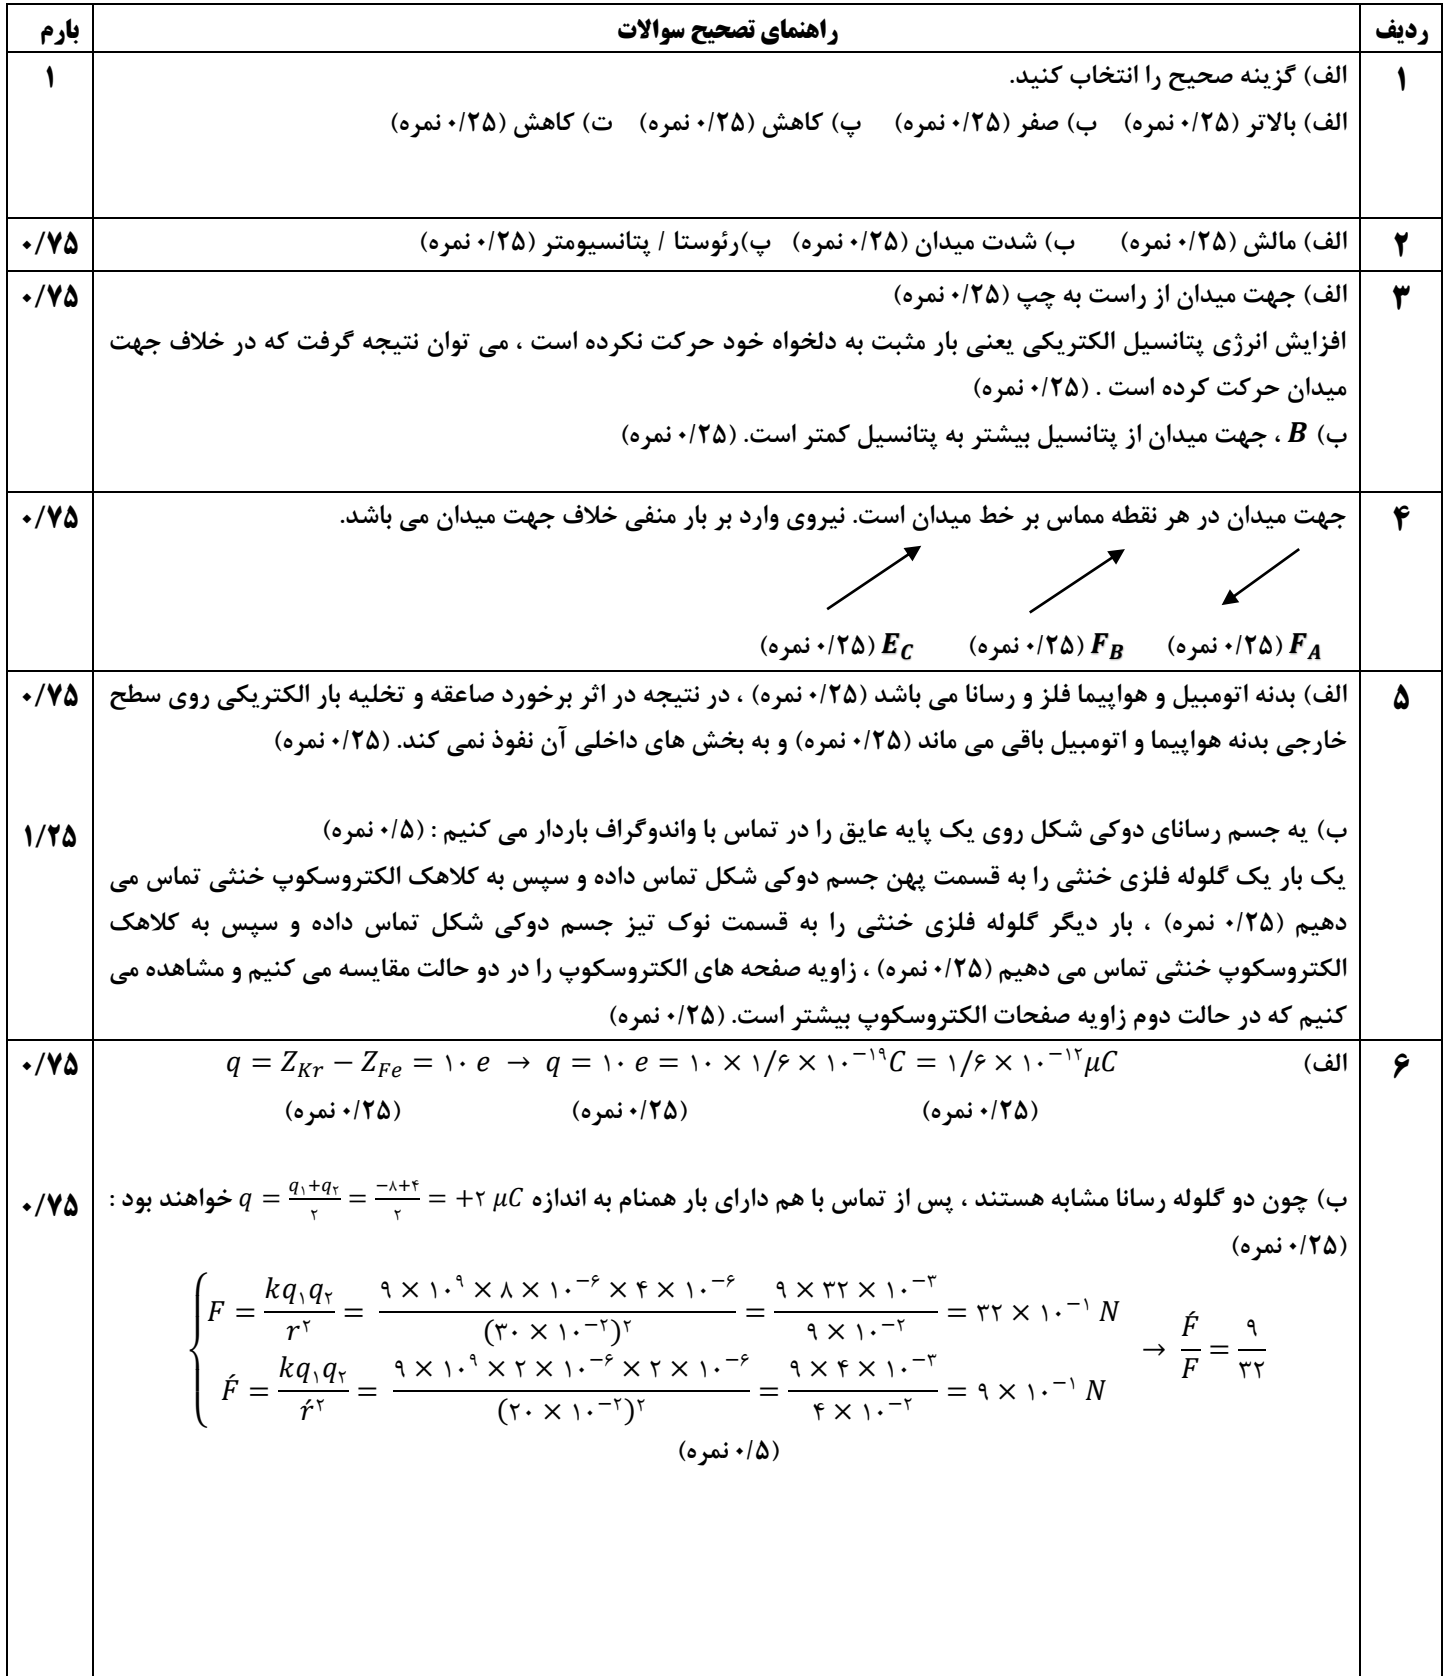 ردیف	راهنمای تصحیح سوالات	بارم
۱	الف) گزینه صحیح را انتخاب کنید.	۱
الف) بالاتر (۰/۲۵ نمره) ب) صفر (۰/۲۵ نمره) پ) کاهش (۰/۲۵ نمره) ت) کاهش (۰/۲۵ نمره)
۲	الف) مالش (۰/۲۵ نمره) ب) شدت میدان (۰/۲۵ نمره) پ)رئوستا / پتانسیومتر (۰/۲۵ نمره)	۰/۷۵
۳	الف) جهت میدان از راست به چپ (۰/۲۵ نمره)	۰/۷۵
افزایش انرژی پتانسیل الکتریکی یعنی بار مثبت به دلخواه خود حرکت نکرده است ، می توان نتیجه گرفت که در خلاف جهت
میدان حرکت کرده است . (۰/۲۵ نمره)
ب) B ، جهت میدان از پتانسیل بیشتر به پتانسیل کمتر است. (۰/۲۵ نمره)
۴	جهت میدان در هر نقطه مماس بر خط میدان است. نیروی وارد بر بار منفی خلاف جهت میدان می باشد.	۰/۷۵
F_A (۰/۲۵ نمره) F_B (۰/۲۵ نمره) E_C (۰/۲۵ نمره)
۵	الف) بدنه اتومبیل و هواپیما فلز و رسانا می باشد (۰/۲۵ نمره) ، در نتیجه در اثر برخورد صاعقه و تخلیه بار الکتریکی روی سطح	۰/۷۵
خارجی بدنه هواپیما و اتومبیل باقی می ماند (۰/۲۵ نمره) و به بخش های داخلی آن نفوذ نمی کند. (۰/۲۵ نمره)
ب) یه جسم رسانای دوکی شکل روی یک پایه عایق را در تماس با واندوگراف باردار می کنیم : (۰/۵ نمره)	۱/۲۵
یک بار یک گلوله فلزی خنثی را به قسمت پهن جسم دوکی شکل تماس داده و سپس به کلاهک الکتروسکوپ خنثی تماس می
دهیم (۰/۲۵ نمره) ، بار دیگر گلوله فلزی خنثی را به قسمت نوک تیز جسم دوکی شکل تماس داده و سپس به کلاهک
الکتروسکوپ خنثی تماس می دهیم (۰/۲۵ نمره) ، زاویه صفحه های الکتروسکوپ را در دو حالت مقایسه می کنیم و مشاهده می
کنیم که در حالت دوم زاویه صفحات الکتروسکوپ بیشتر است. (۰/۲۵ نمره)
۶	الف) q = Z_Kr − Z_Fe = ۱۰ e → q = ۱۰ e = ۱۰ × ۱/۶ × ۱۰^−۱۹ C = ۱/۶ × ۱۰^−۱۲ μC	۰/۷۵
(۰/۲۵ نمره) (۰/۲۵ نمره) (۰/۲۵ نمره)
ب) چون دو گلوله رسانا مشابه هستند ، پس از تماس با هم دارای بار همنام به اندازه q = (q_۱+q_۲)/۲ = (−۸+۴)/۲ = +۲ μC خواهند بود :	۰/۷۵
(۰/۲۵ نمره)
F = kq_۱q_۲/r^۲ = (۹ × ۱۰^۹ × ۸ × ۱۰^−۶ × ۴ × ۱۰^−۶)/(۳۰ × ۱۰^−۲)^۲ = (۹ × ۳۲ × ۱۰^−۳)/(۹ × ۱۰^−۲) = ۳۲ × ۱۰^−۱ N
F́ = kq_۱q_۲/ŕ^۲ = (۹ × ۱۰^۹ × ۲ × ۱۰^−۶ × ۲ × ۱۰^−۶)/(۲۰ × ۱۰^−۲)^۲ = (۹ × ۴ × ۱۰^−۳)/(۴ × ۱۰^−۲) = ۹ × ۱۰^−۱ N → F́/F = ۹/۳۲
(۰/۵ نمره)